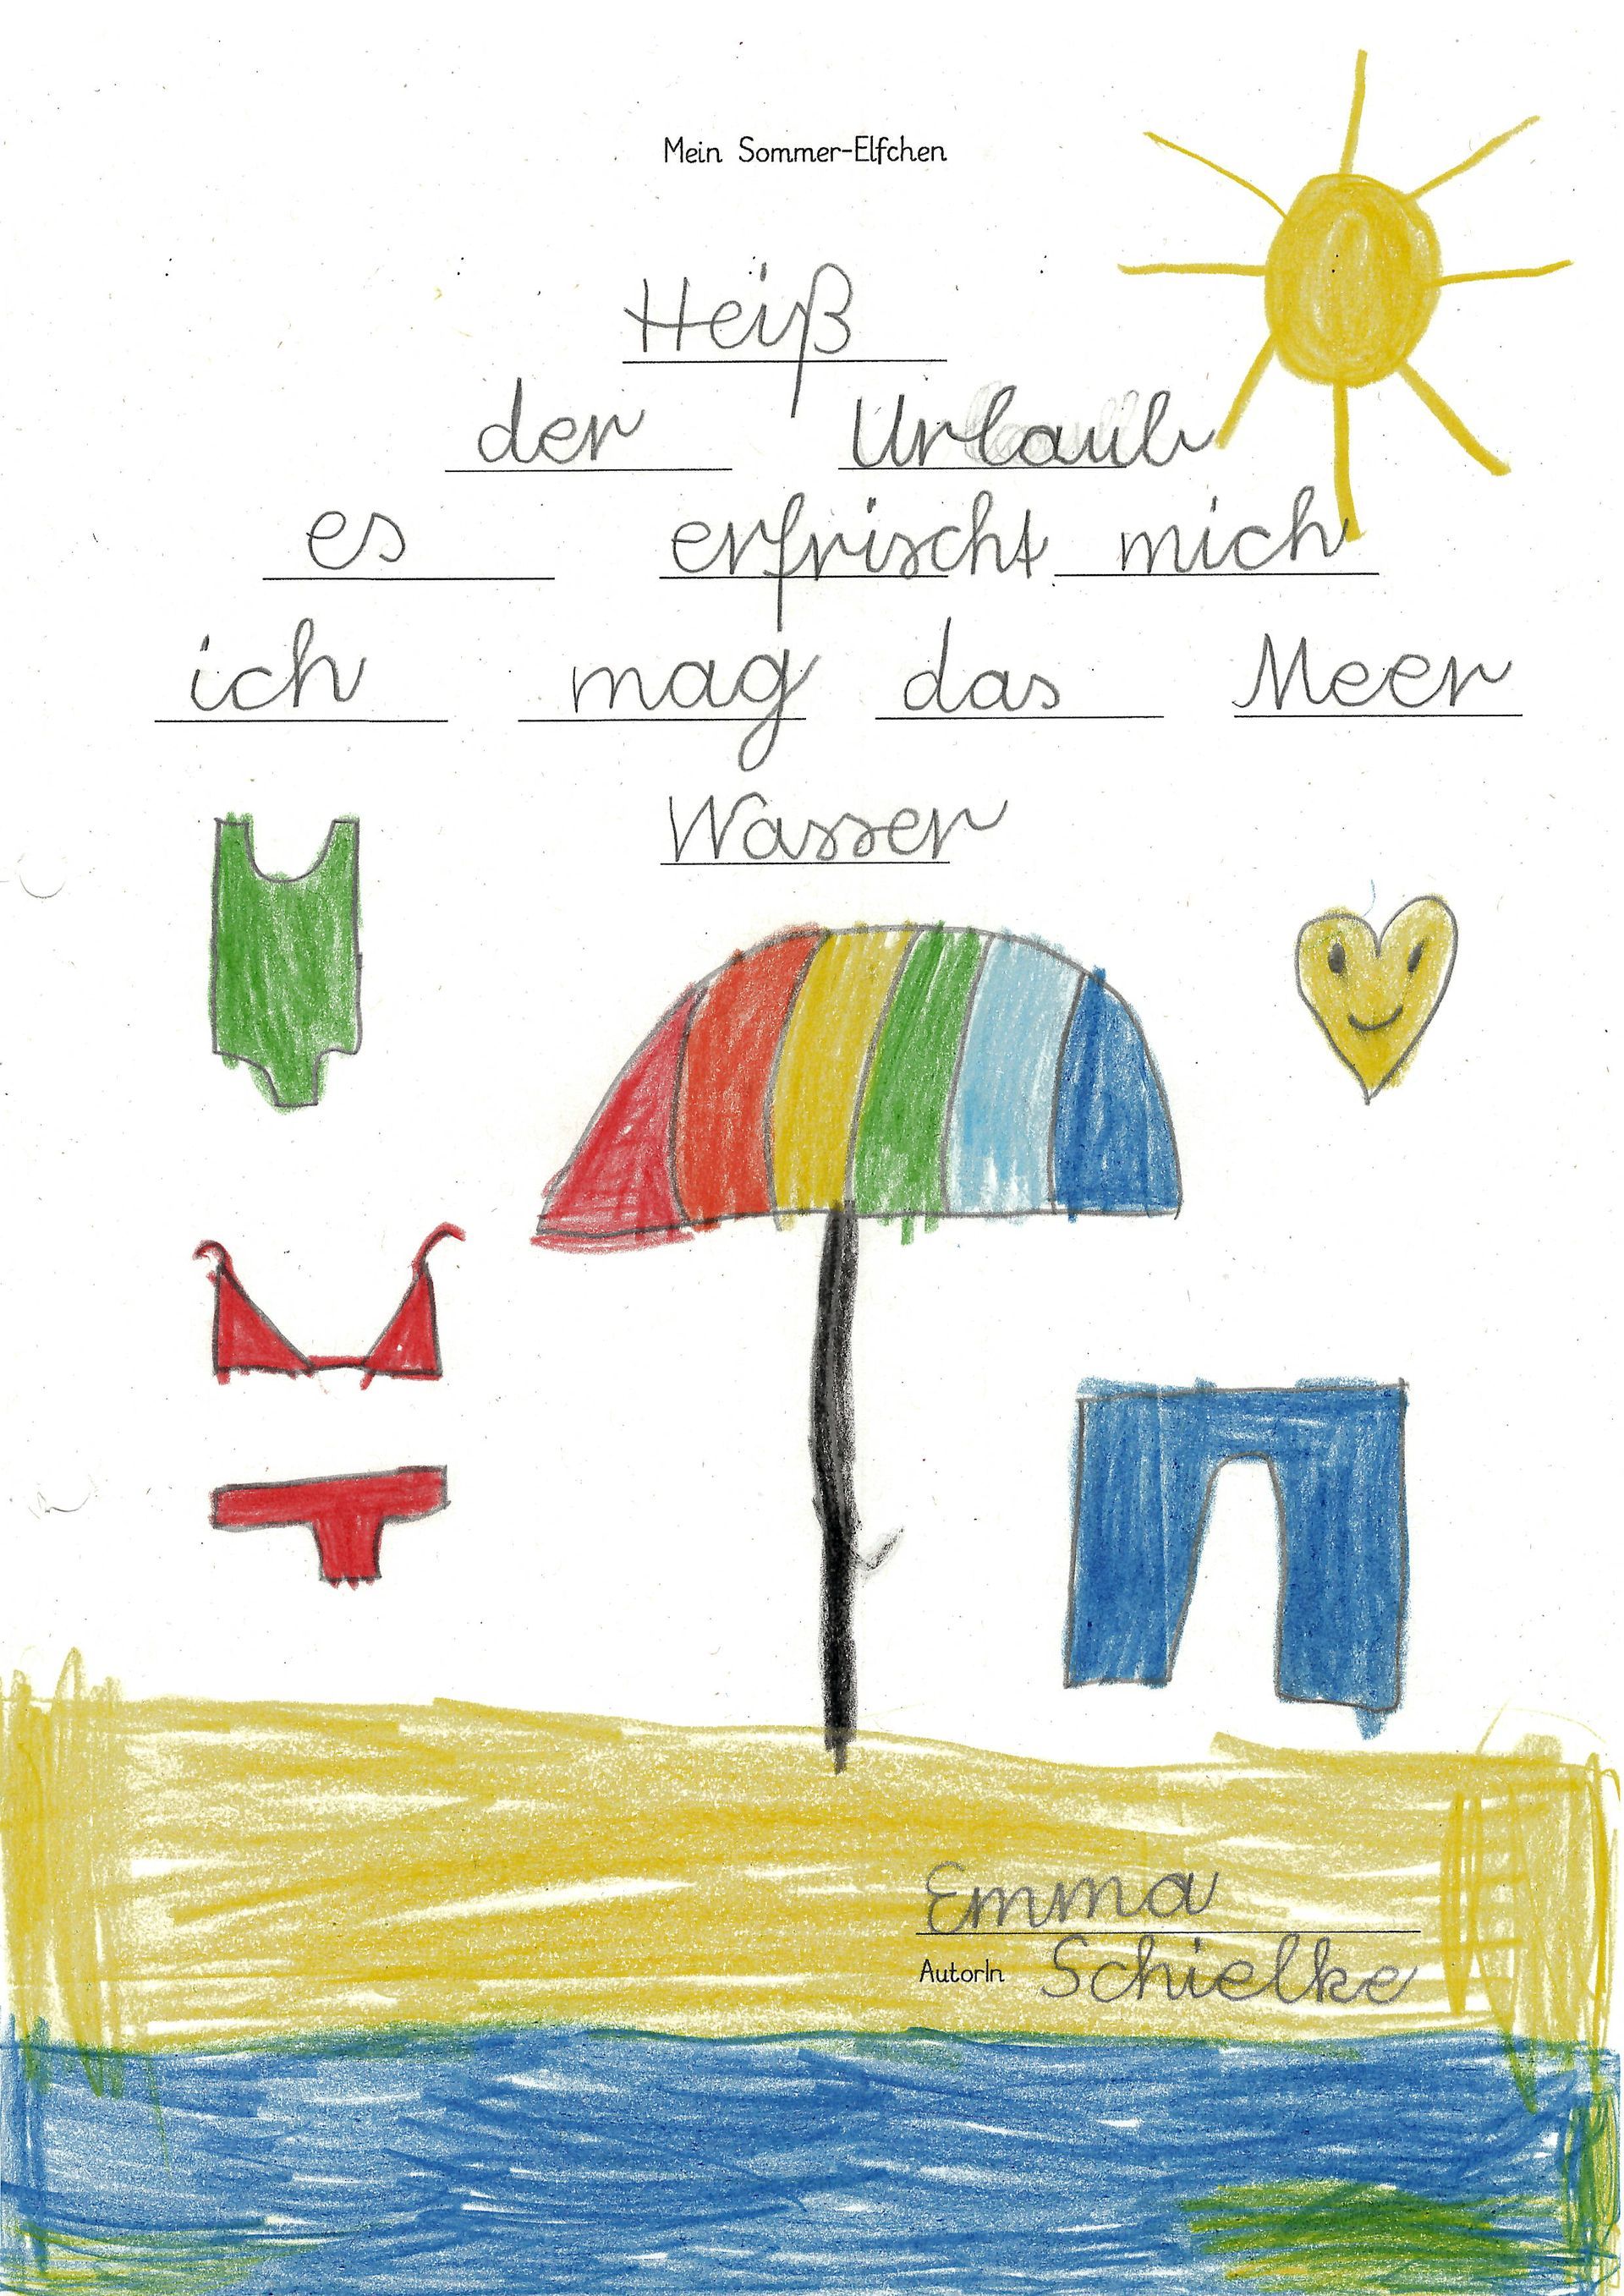 Mein Sommer-Elfchen
Heiß
der Urlaub
es erfrischt mich
ich mag das Meer
Wasser
Emma
AutorIn Schielke